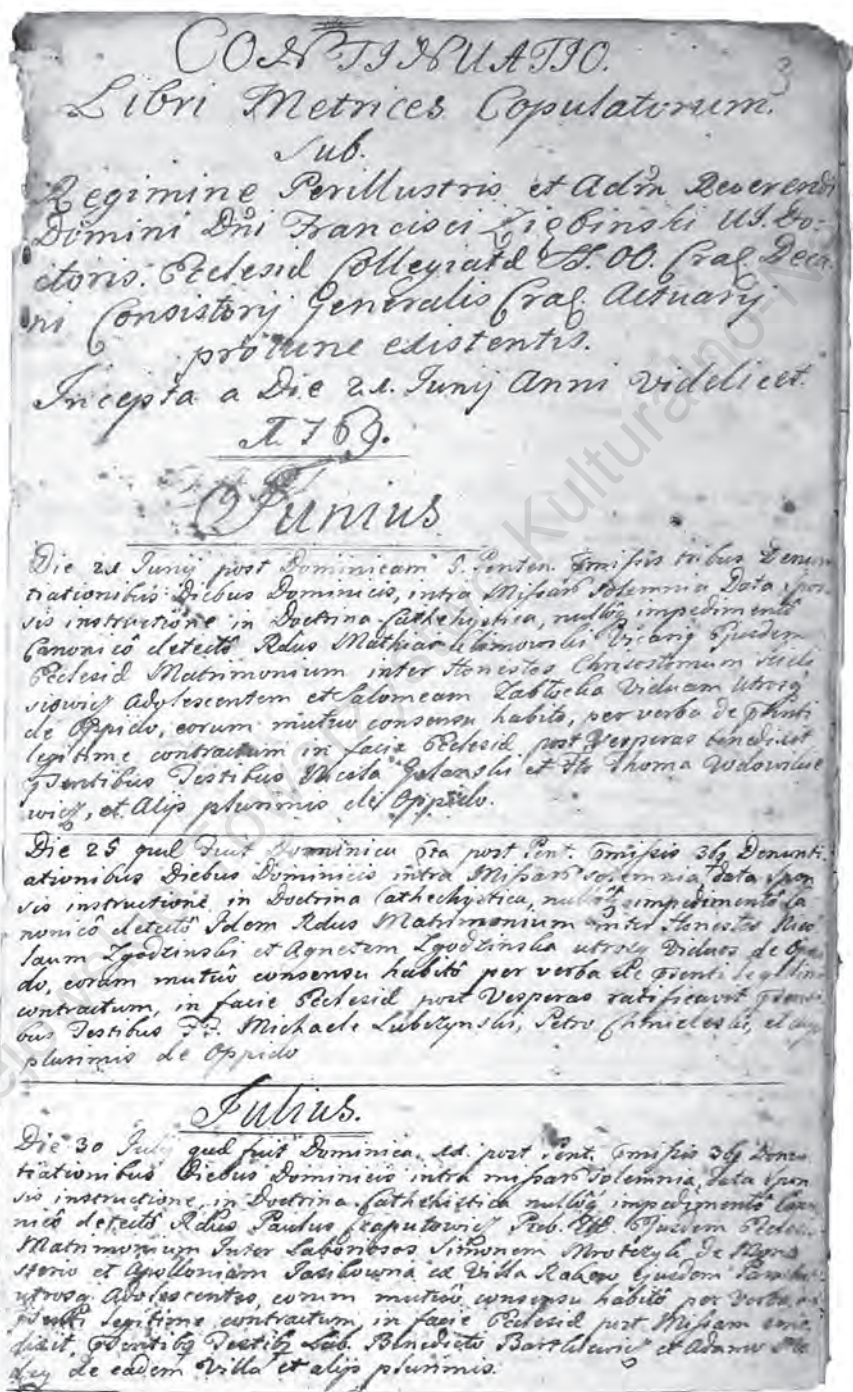 3
CONTINUATIO.
Libri Metrices Copulatorum.
Sub.
Regimine Perillustris et Adm̃ Reverendi
Domini Dñi Francisci Ziębinski U.J. Do-
ctoris. Ecclesiæ Collegiatæ OO. Crac. Deca-
ni Consistorij Generalis Crac. Actuarij
protunc existentis.
Incepta a Die 21. Junij Anni videlicet.
1769.
Junius
Die 21 Junij post Dominicam 5. Penten. Præmissis tribus Denun
tiationibus Diebus Dominicis, intra Missar̃ Solemnia Data Spon-
sis instructione in Doctrina Cathechystica, nullôq impedimentô
Canonicô detectô Rdus Mathias Vicarig Ejusdem
Ecclesiæ Matrimonium inter Honestos Chrisostomum
siowicz Adolescentem et Salomeam Zabłocka Viduam utrosq
de Oppido, eorum mutuo consensu habito, per verba de Psenti
legitime contractum in facie Ecclesiæ post Vesperas benedixit
Psentibus Testibus et Thoma
wicz, et Alijs plurimis de Oppido.
Die 25 quæ Fuit Dominica 6ta post Pent. Præmissis 3bg Denunti
ationibus Diebus Dominicis intra Missar̃ Solemnia data Spon
sis instructione in Doctrina Cathechystica, nullôq impedimentô Ca
nonicô detectô Idem Rdus Matrimonium inter Honestos Nico
laum Zgodzinski et Agnetem Zgodzinska utrosq Viduos de Oppi
do, eorum mutuô consensu habitô per verba de Psenti legitime
contractum, in facie Ecclesiæ post Vesperas ratificavit Psenti
bus Testibus FF. Michaele Lubczynski, Petro Chmieleski, et alijs
plurimis de Oppido
Julius.
Die 30 Julij quæ fuit Dominica post Pent. Præmissis 3bg Denun
tiationibus Diebus Dominicis intra missar̃ Solemnia, data Spon
sis instructione, in Doctrina Cathehistica nullôq impedimentô Cano
nicô detectô Rdus Paulus Czaputowicz Ejusdem Ecclesiæ
Matrimonium Inter Laboriosos Simonem Mroczyk de Mona
sterio et Apolloniam Jasikowna ex Villa Rakow Ejusdem
utrosq Adolescentes, eorum mutuô consensu habitô per Verba de
Psenti legitime contractum, in facie Ecclesiæ post Missam bene
dixit, Psentibg Testibg Lab. Benedicto et Adamo
de eadem Villa et alijs plurimis.